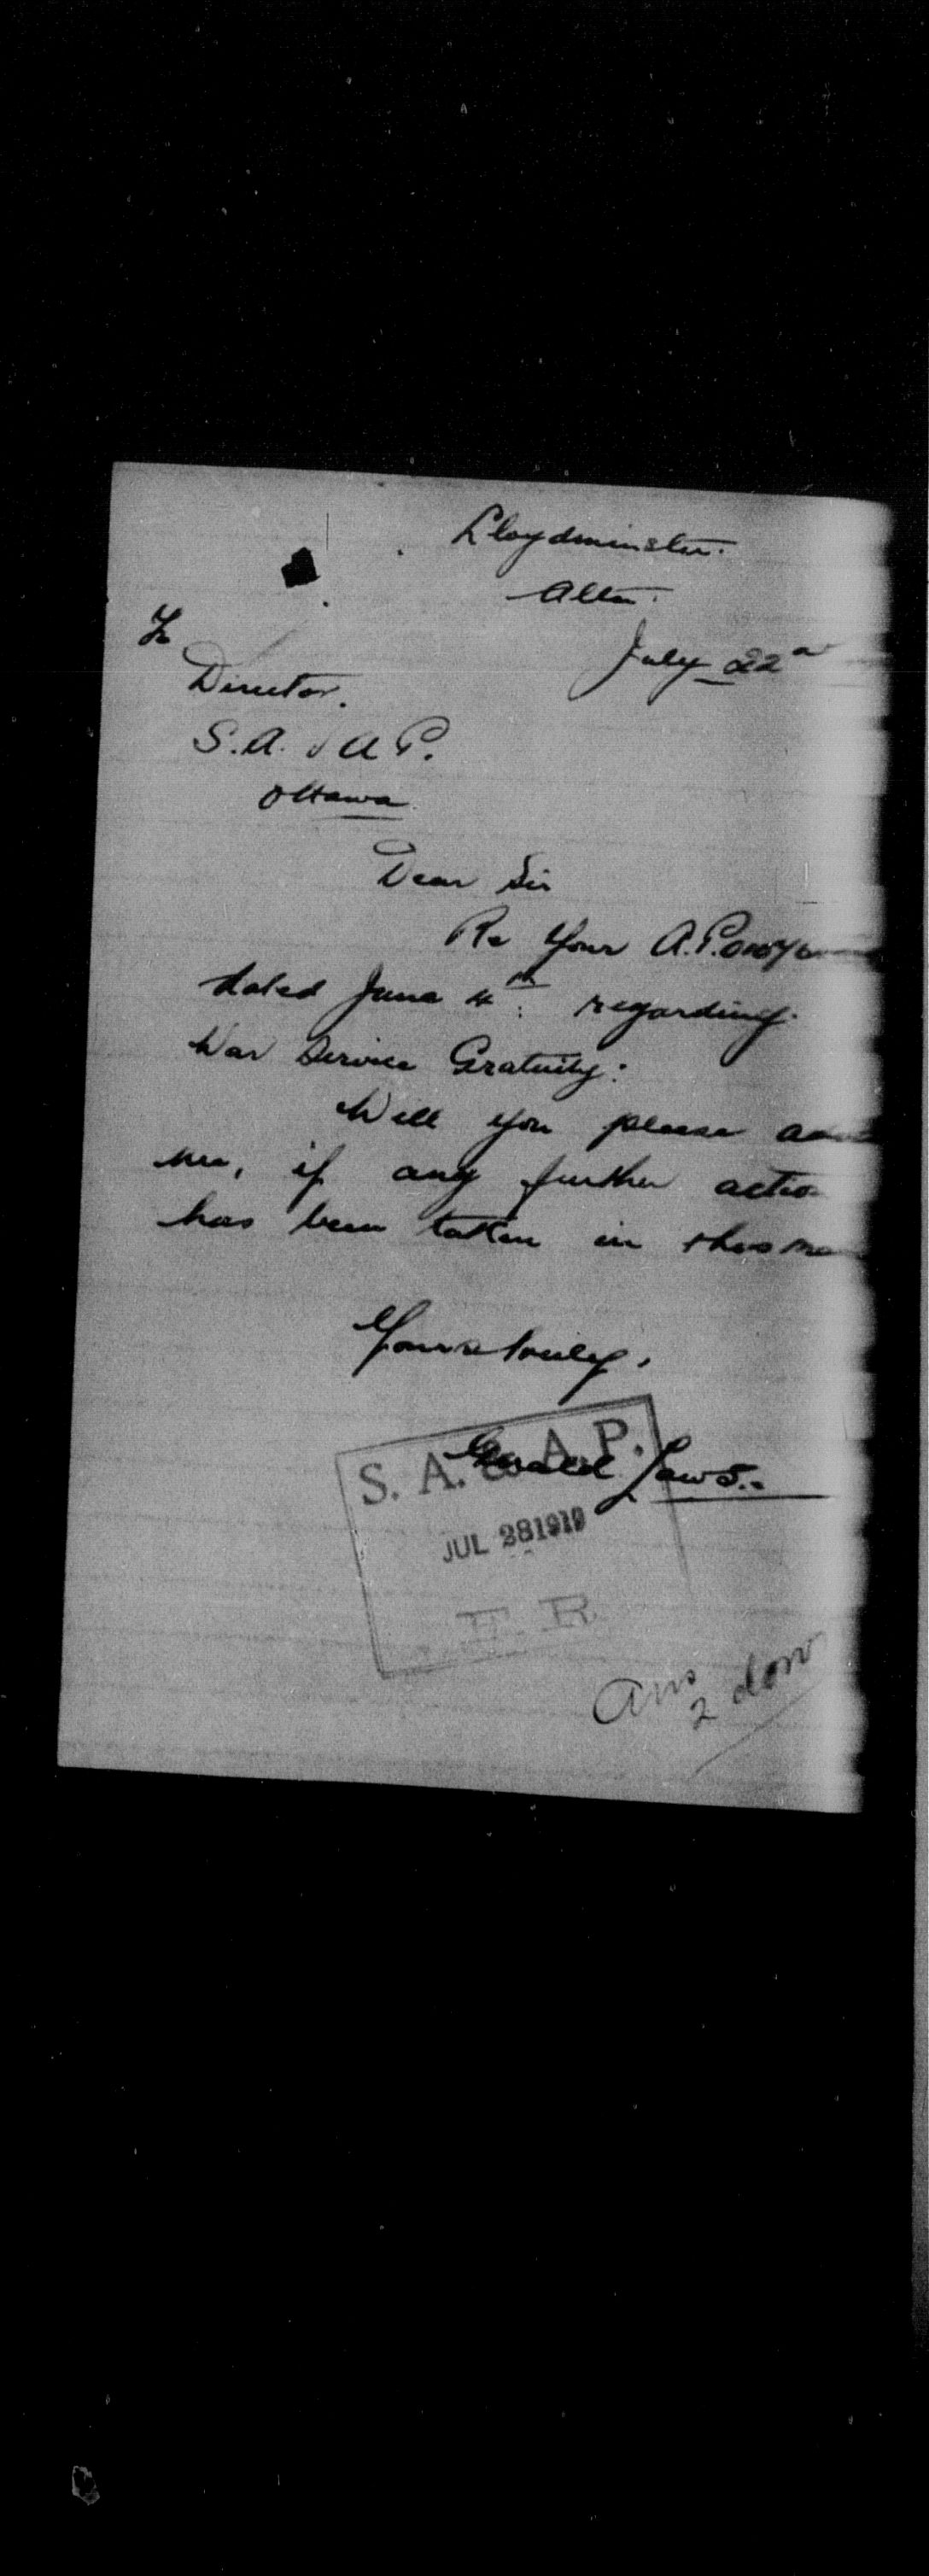 Lloydminster.
Alta.
July 22nd
To
Director.
S.A. & A P.
Ottawa
Dear Sir
Re Your A.P.
dated June 4th: regarding
War Service Gratuity.
Will you please
me, if any further actio
has been taken in this
Yours truly,
Gerald Laws.
S. A. & A. P.
JUL 28 1919
F. R.
Ans
2